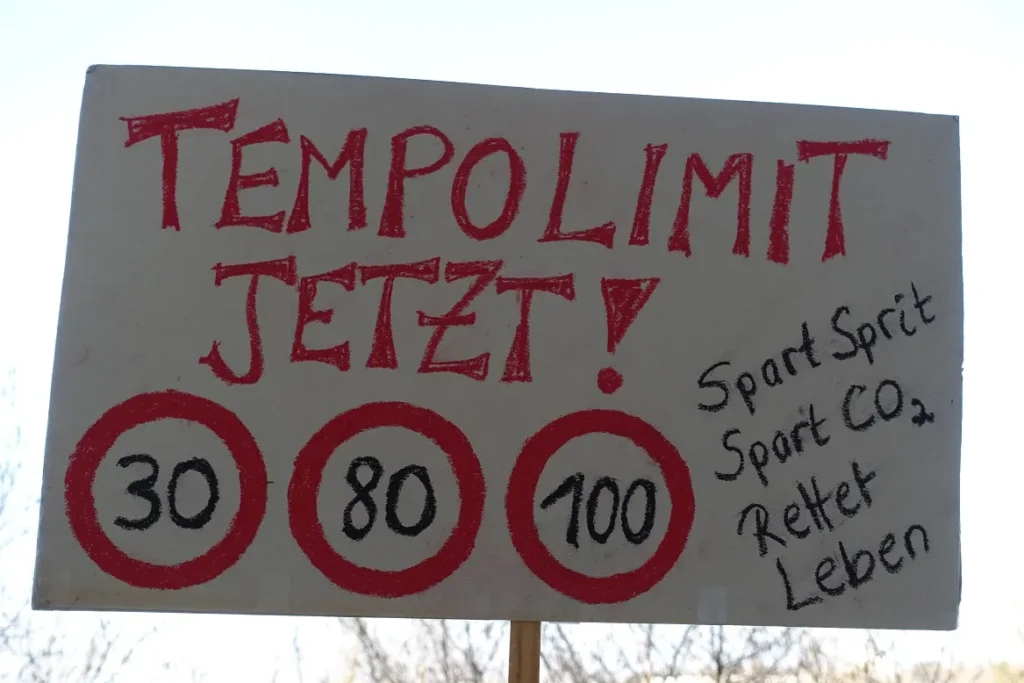 TEMPOLIMIT
JETZT!
30 80 100
Spart Sprit
Spart CO₂
Rettet
Leben